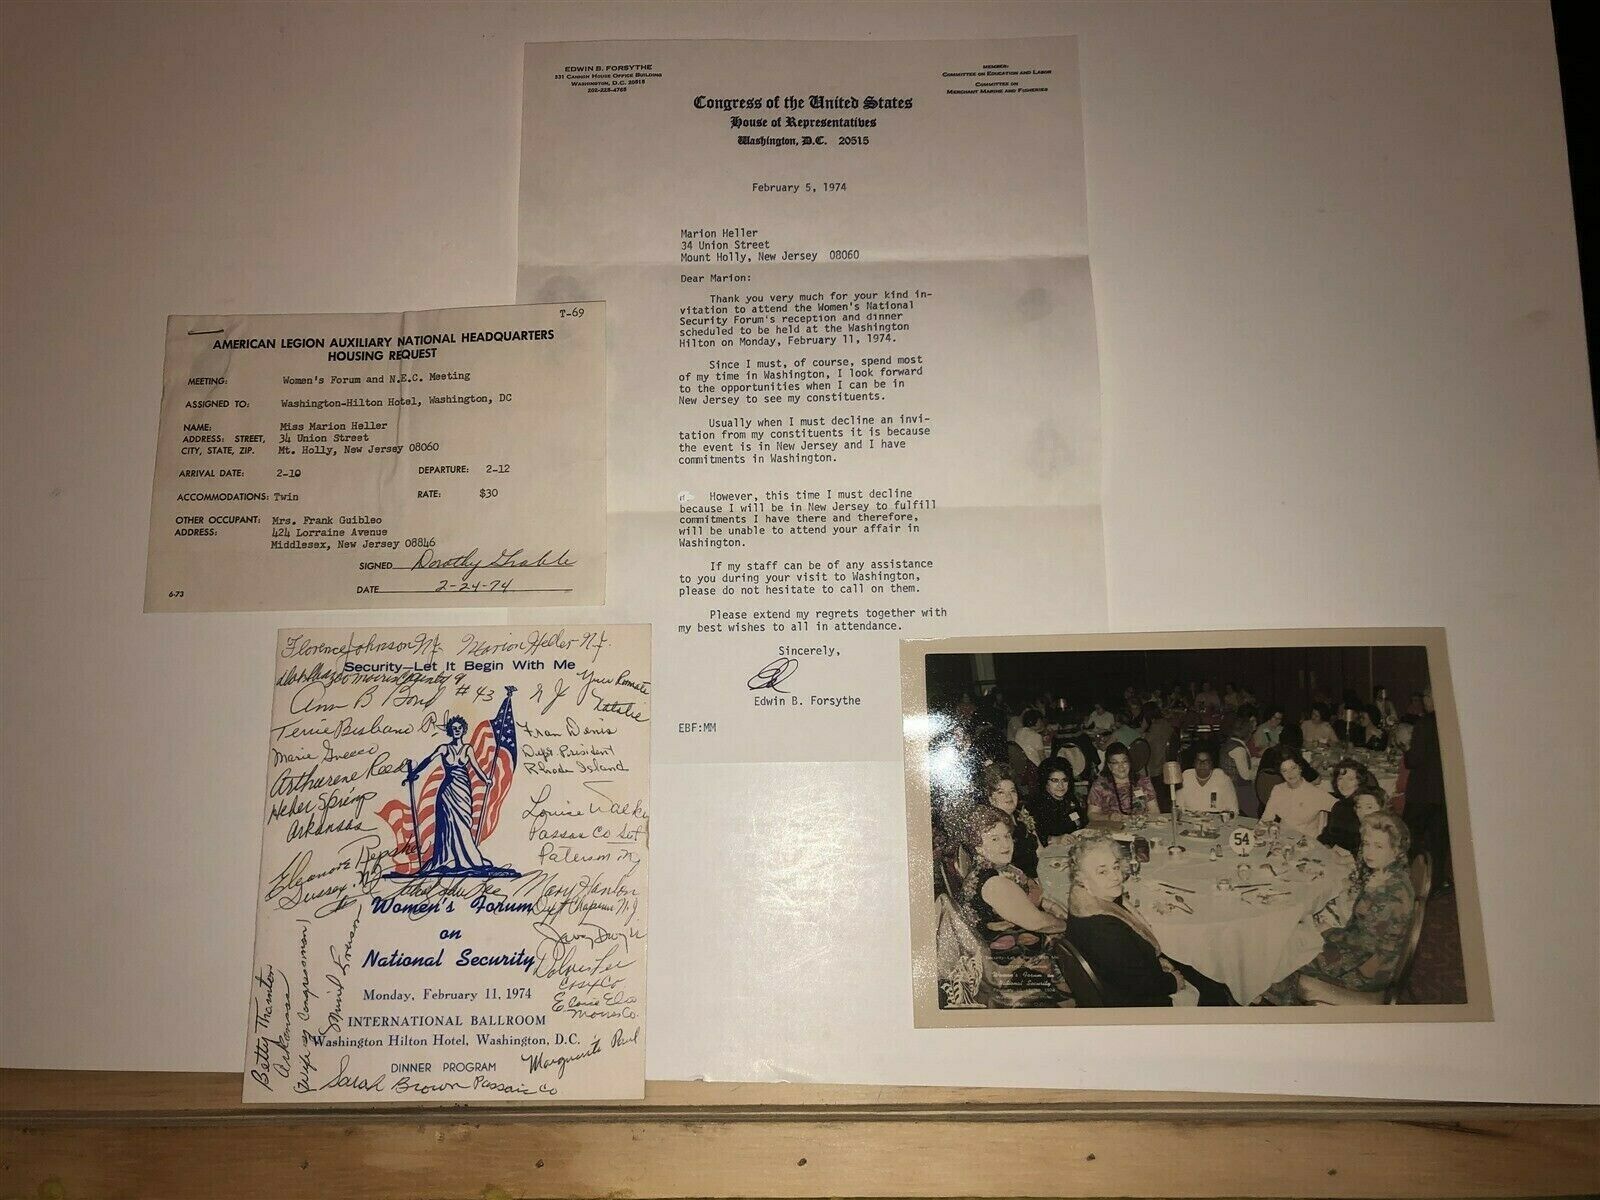 EDWIN B. FORSYTHE
331 CANNON HOUSE OFFICE BUILDING
WASHINGTON, D.C. 20515
202-225-4765
MEMBER:
COMMITTEE ON EDUCATION AND LABOR
COMMITTEE ON
MERCHANT MARINE AND FISHERIES
Congress of the United States
House of Representatives
Washington, D.C. 20515
February 5, 1974
Marion Heller
34 Union Street
Mount Holly, New Jersey 08060
Dear Marion:
Thank you very much for your kind in-
vitation to attend the Women's National
Security Forum's reception and dinner
scheduled to be held at the Washington
Hilton on Monday, February 11, 1974.
Since I must, of course, spend most
of my time in Washington, I look forward
to the opportunities when I can be in
New Jersey to see my constituents.
Usually when I must decline an invi-
tation from my constituents it is because
the event is in New Jersey and I have
commitments in Washington.
However, this time I must decline
because I will be in New Jersey to fulfill
commitments I have there and therefore,
will be unable to attend your affair in
Washington.
If my staff can be of any assistance
to you during your visit to Washington,
please do not hesitate to call on them.
Please extend my regrets together with
my best wishes to all in attendance.
Sincerely,
Ed
Edwin B. Forsythe
EBF:MM
T-69
AMERICAN LEGION AUXILIARY NATIONAL HEADQUARTERS
HOUSING REQUEST
MEETING: Women's Forum and N.E.C. Meeting
ASSIGNED TO: Washington-Hilton Hotel, Washington, DC
NAME: Miss Marion Heller
ADDRESS: STREET, 34 Union Street
CITY, STATE, ZIP. Mt. Holly, New Jersey 08060
ARRIVAL DATE: 2-10 DEPARTURE: 2-12
ACCOMMODATIONS: Twin RATE: $30
OTHER OCCUPANT: Mrs. Frank Guibleo
ADDRESS: 424 Lorraine Avenue
Middlesex, New Jersey 08846
SIGNED Dorothy
DATE 2-24-74
6-73
Florence Johnson N.J. Marion Heller N.J.
Security—Let It Begin With Me
Morris County
Ann B Bond #43 N J
Your Roomate
Natalie
Terrie Bisbano R.I.
Marie Greco
Fran Denis
Dept. President
Rhode Island
Artharene Reed
Heber Springs
Arkansas
Louise Walker
Passaic Co Sgt
Paterson NJ
Eleanore Repsher
Sussex. N.J.
Mary Hanlon
Dept Chapman N.J.
Women's Forum
on
National Security
Dolores Lee
Essex Co
Morris Co.
Monday, February 11, 1974
INTERNATIONAL BALLROOM
Washington Hilton Hotel, Washington, D.C.
DINNER PROGRAM
Marguerite Paul
Sarah Brown Passaic Co
Betty Thornton
Arkansas
(Wife of Congressman)
54
Security-Let It Begin With Me
Women's Forum on
National Security